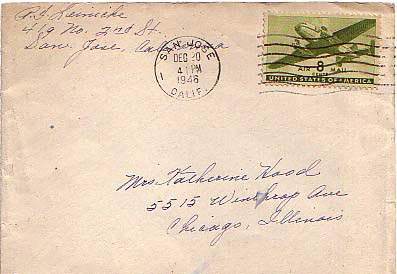 419 No. 2nd St.
San Jose, California
SAN JOSE
DEC 20
4 PM
1946
1
CALIF.
AIR MAIL
8
CENTS
UNITED STATES OF AMERICA
Mrs. Katherine Hood
5515 Winthrop Ave
Chicago, Illinois